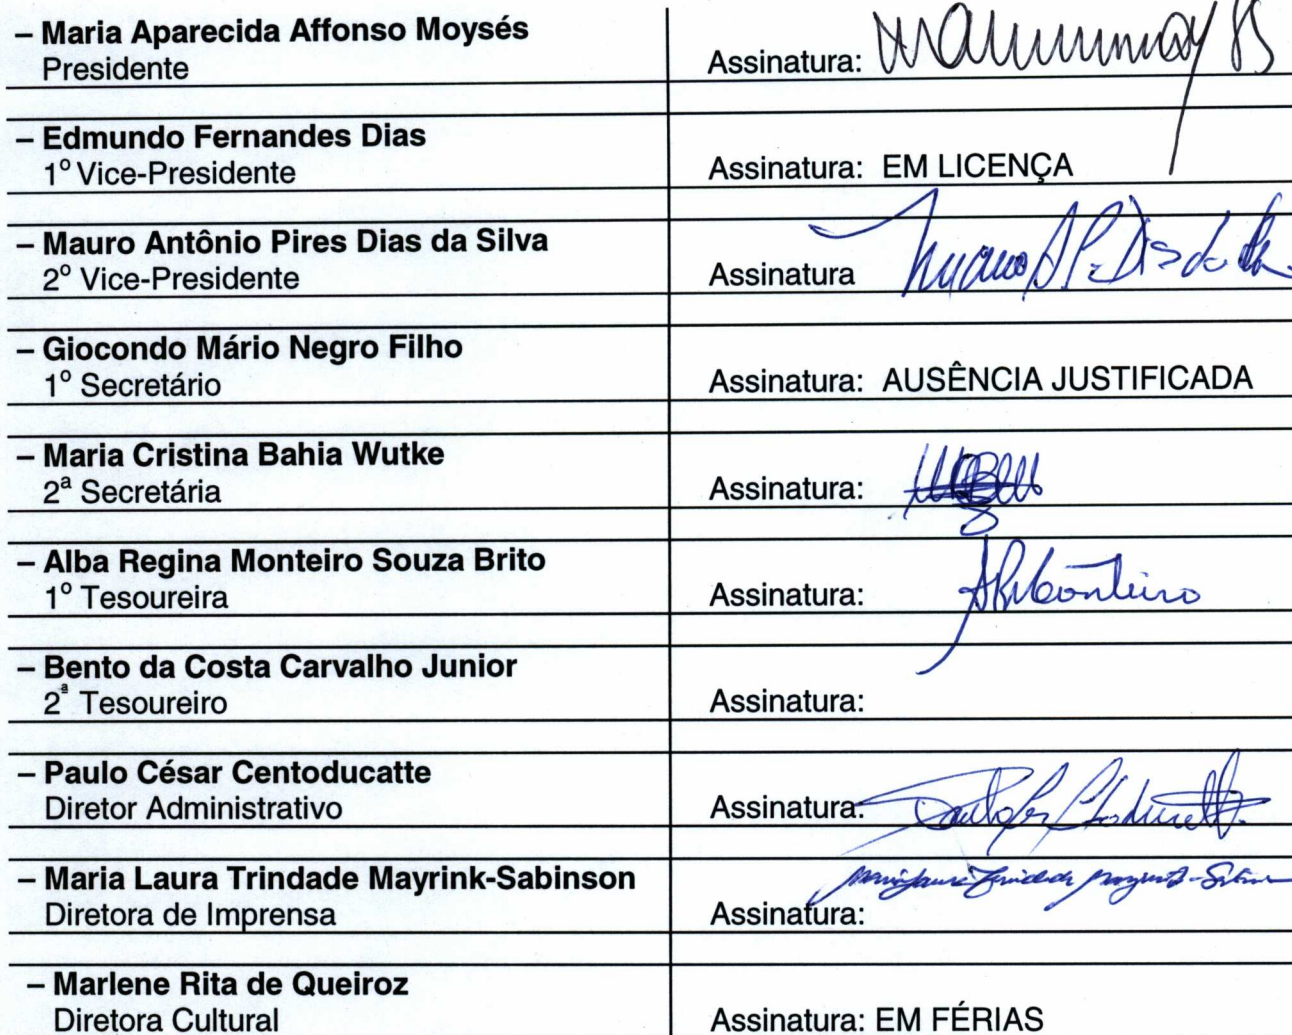 – Maria Aparecida Affonso Moysés
Presidente
Assinatura:
– Edmundo Fernandes Dias
1º Vice-Presidente
Assinatura: EM LICENÇA
– Mauro Antônio Pires Dias da Silva
2º Vice-Presidente
Assinatura
– Giocondo Mário Negro Filho
1º Secretário
Assinatura: AUSÊNCIA JUSTIFICADA
– Maria Cristina Bahia Wutke
2ª Secretária
Assinatura:
– Alba Regina Monteiro Souza Brito
1º Tesoureira
Assinatura: ARMonteiro
– Bento da Costa Carvalho Junior
2ª Tesoureiro
Assinatura:
– Paulo César Centoducatte
Diretor Administrativo
Assinatura:
– Maria Laura Trindade Mayrink-Sabinson
Diretora de Imprensa
Assinatura: Maria Laura Trindade Mayrink-Sabinson
– Marlene Rita de Queiroz
Diretora Cultural
Assinatura: EM FÉRIAS